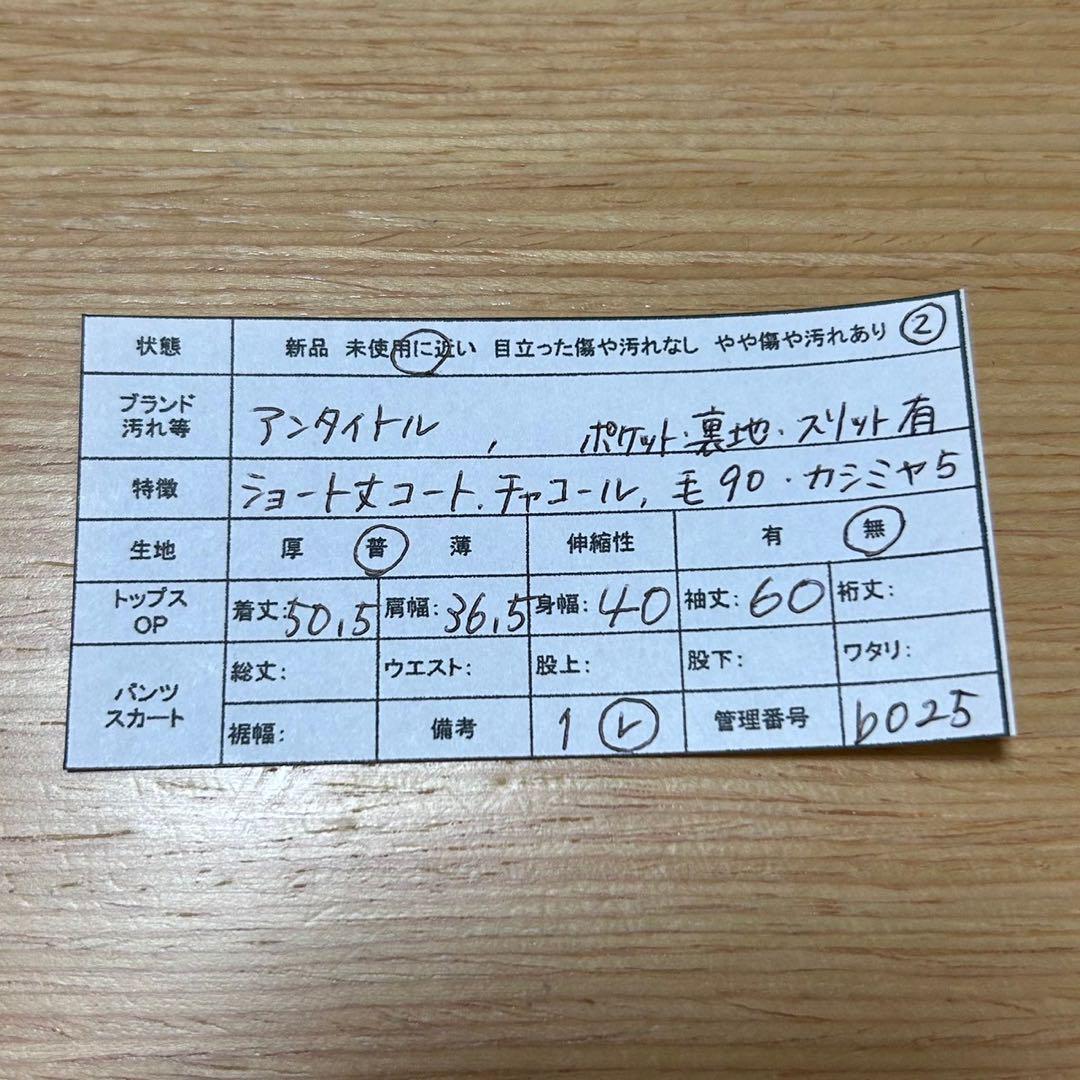 状態 新品 未使用に近い 目立った傷や汚れなし やや傷や汚れあり ②
ブランド
汚れ等 アンタイトル , ポケット・裏地・スリット有
特徴 ショート丈コート、チャコール、毛90・カシミヤ5
生地 厚 普 薄 伸縮性 有 無
トップス
OP 着丈:50,5 肩幅:36,5 身幅:40 袖丈:60 裄丈:
パンツ
スカート 総丈: ウエスト: 股上: 股下: ワタリ:
裾幅: 備考 1 管理番号 b025